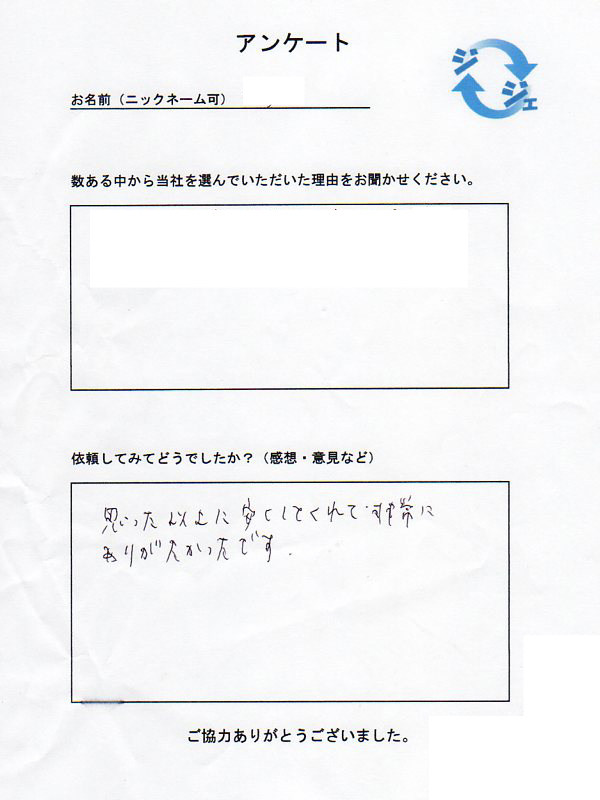 アンケート
ジジェ
お名前（ニックネーム可）
数ある中から当社を選んでいただいた理由をお聞かせください。
依頼してみてどうでしたか？（感想・意見など）
思った以上に安くしてくれて非常に
ありがたかったです.
ご協力ありがとうございました。